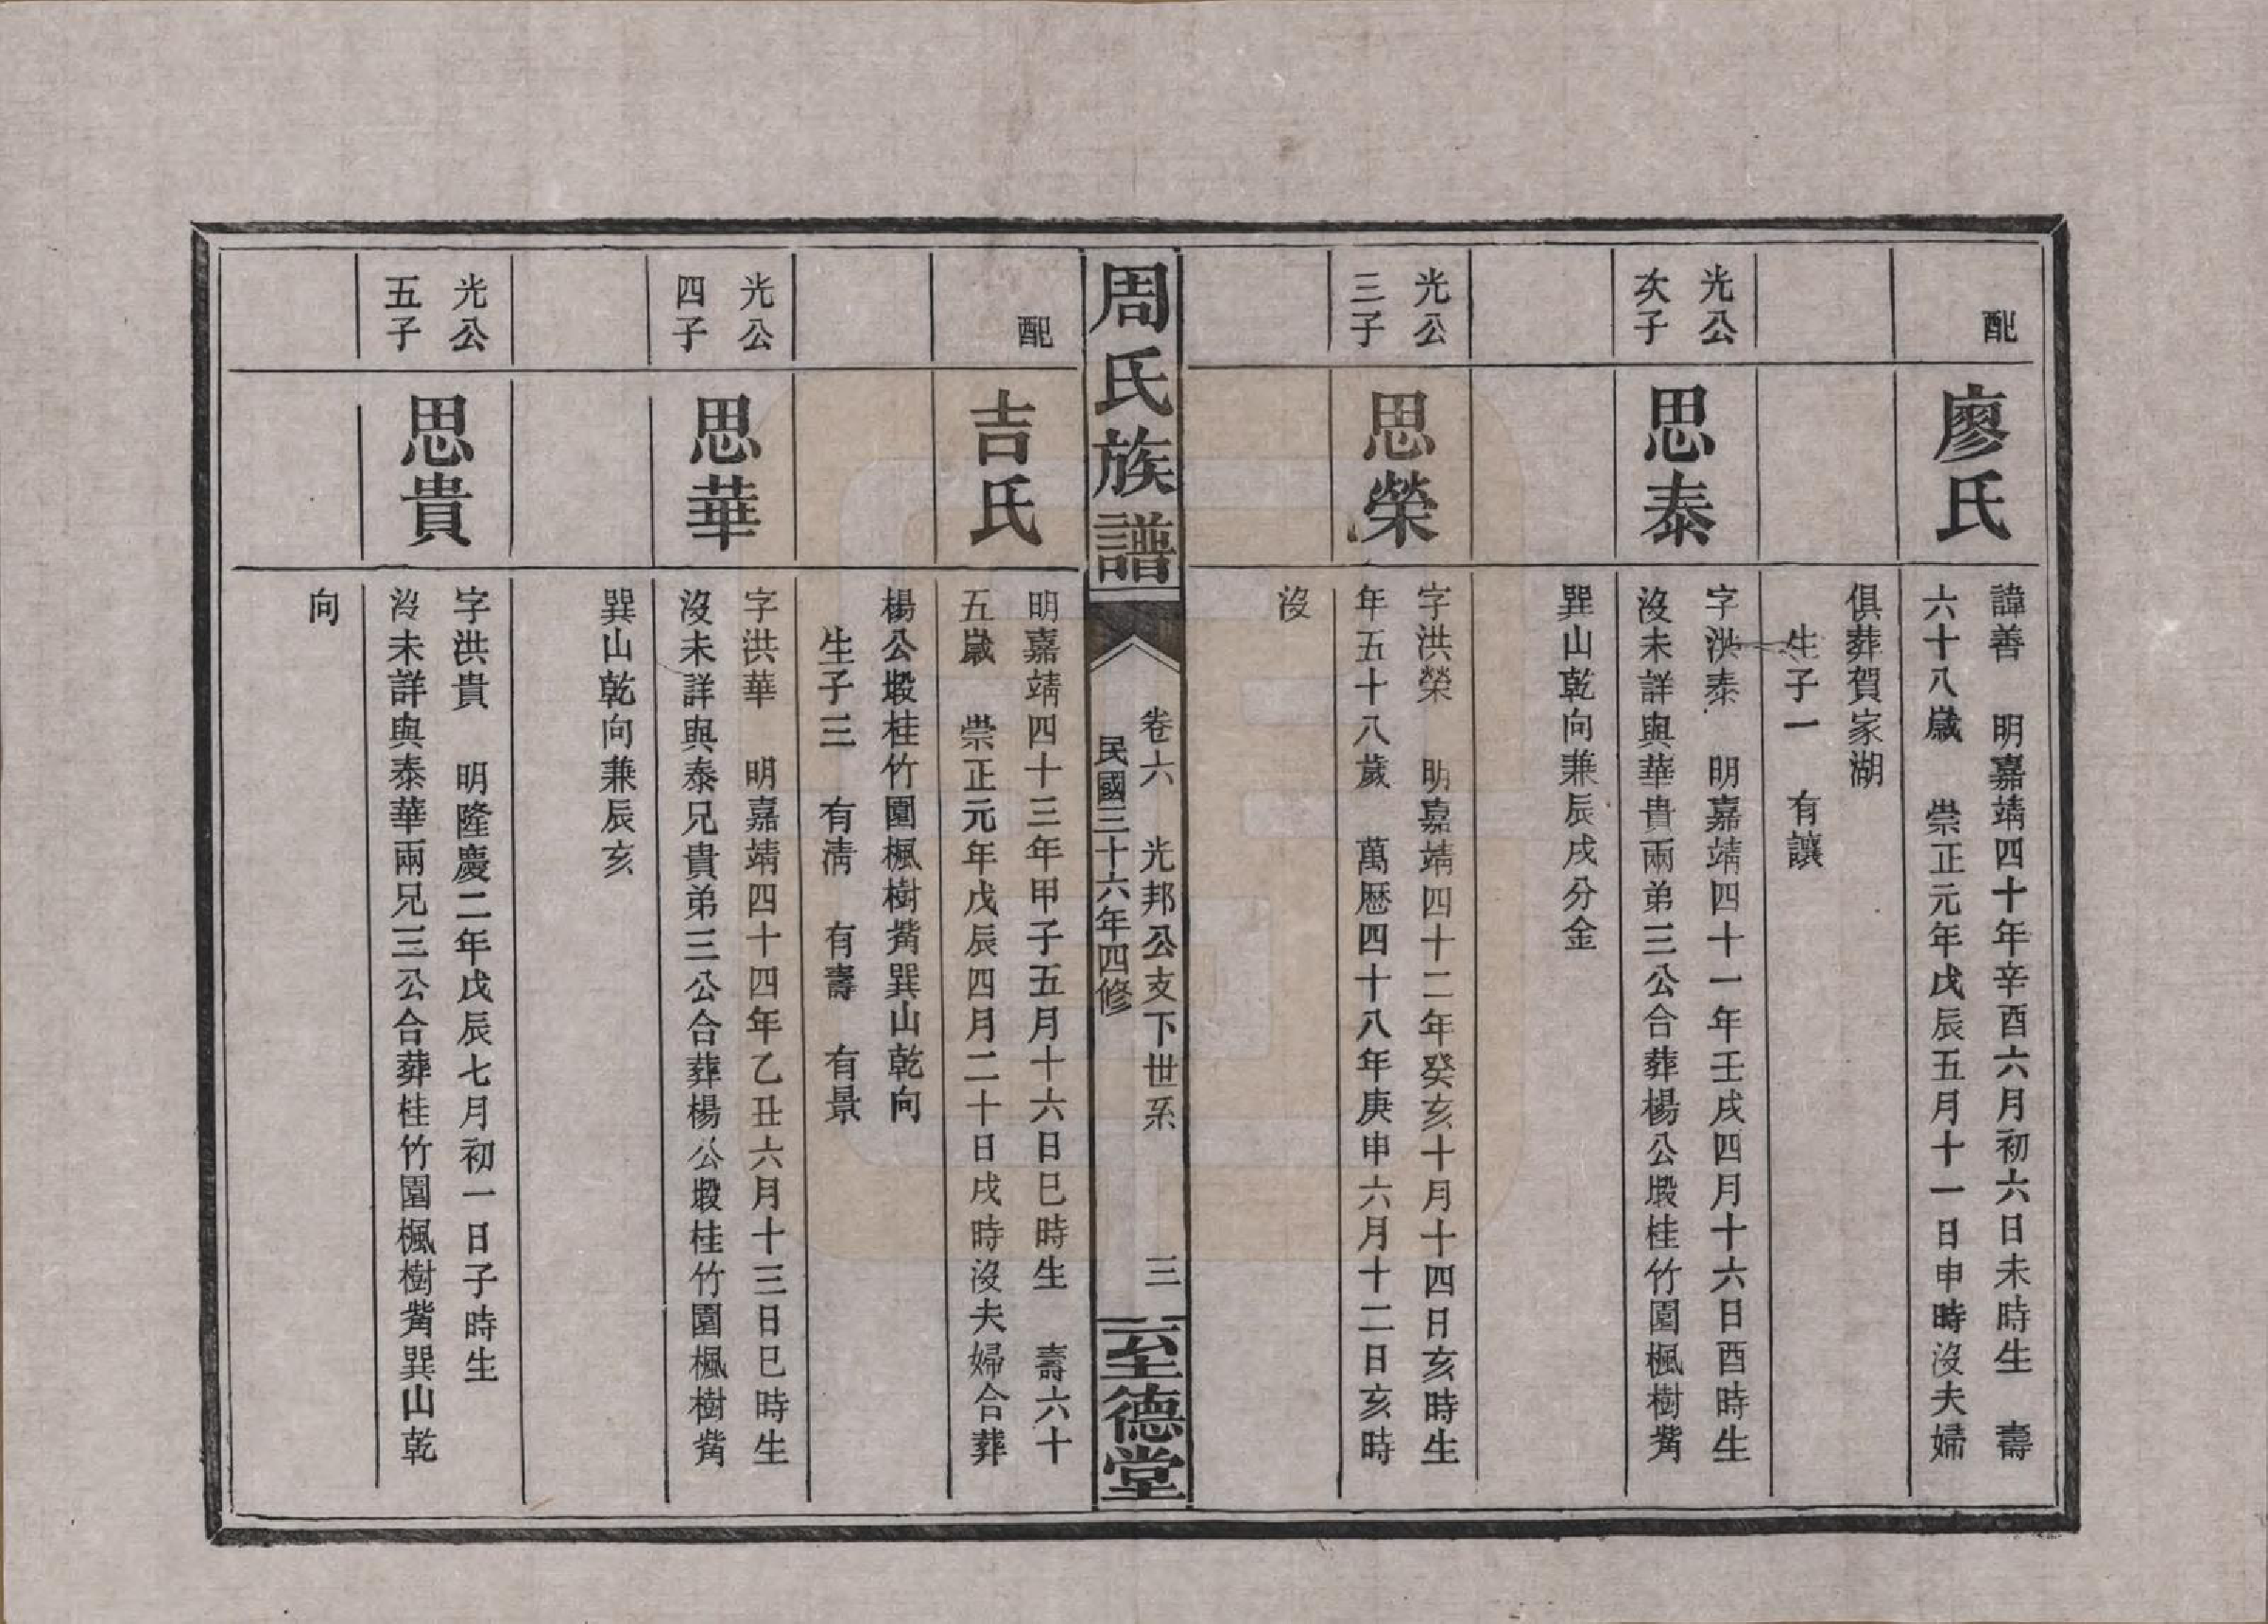 配
廖氏
諱善　明嘉靖四十年辛酉六月初六日未時生　壽
六十八歲　崇正元年戊辰五月十一日申時沒夫婦
俱葬賀家湖
生子一　有讓
光公
次子
思泰
字洪泰　明嘉靖四十一年壬戌四月十六日酉時生
沒未詳與華貴兩弟三公合葬楊公塅桂竹園楓樹觜
巽山乾向兼辰戌分金
光公
三子
思榮
字洪榮　明嘉靖四十二年癸亥十月十四日亥時生
年五十八歲　萬歷四十八年庚申六月十二日亥時
沒
周氏族譜
卷六　光邦公支下世系　三
民國三十六年四修
至德堂
配
吉氏
明嘉靖四十三年甲子五月十六日巳時生　壽六十
五歲　崇正元年戊辰四月二十日戌時沒夫婦合葬
楊公塅桂竹園楓樹觜巽山乾向
生子三　有清　有壽　有景
光公
四子
思華
字洪華　明嘉靖四十四年乙丑六月十三日巳時生
沒未詳與泰兄貴弟三公合葬楊公塅桂竹園楓樹觜
巽山乾向兼辰亥
光公
五子
思貴
字洪貴　明隆慶二年戊辰七月初一日子時生
沒未詳與泰華兩兄三公合葬桂竹園楓樹觜巽山乾
向